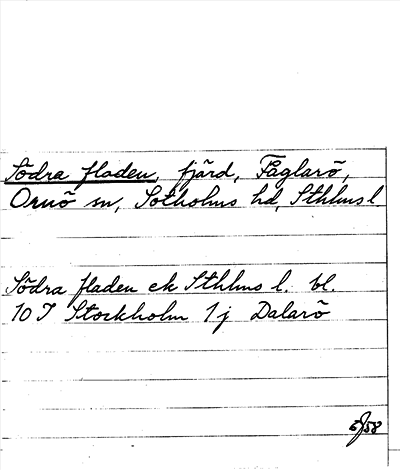 Södra fladen, fjärd, Fåglarö,
Ornö sn, Sotholms hd, Sthlms l.
Södra fladen ek Sthlms l. bl.
10 I Stockholm 1 j Dalarö